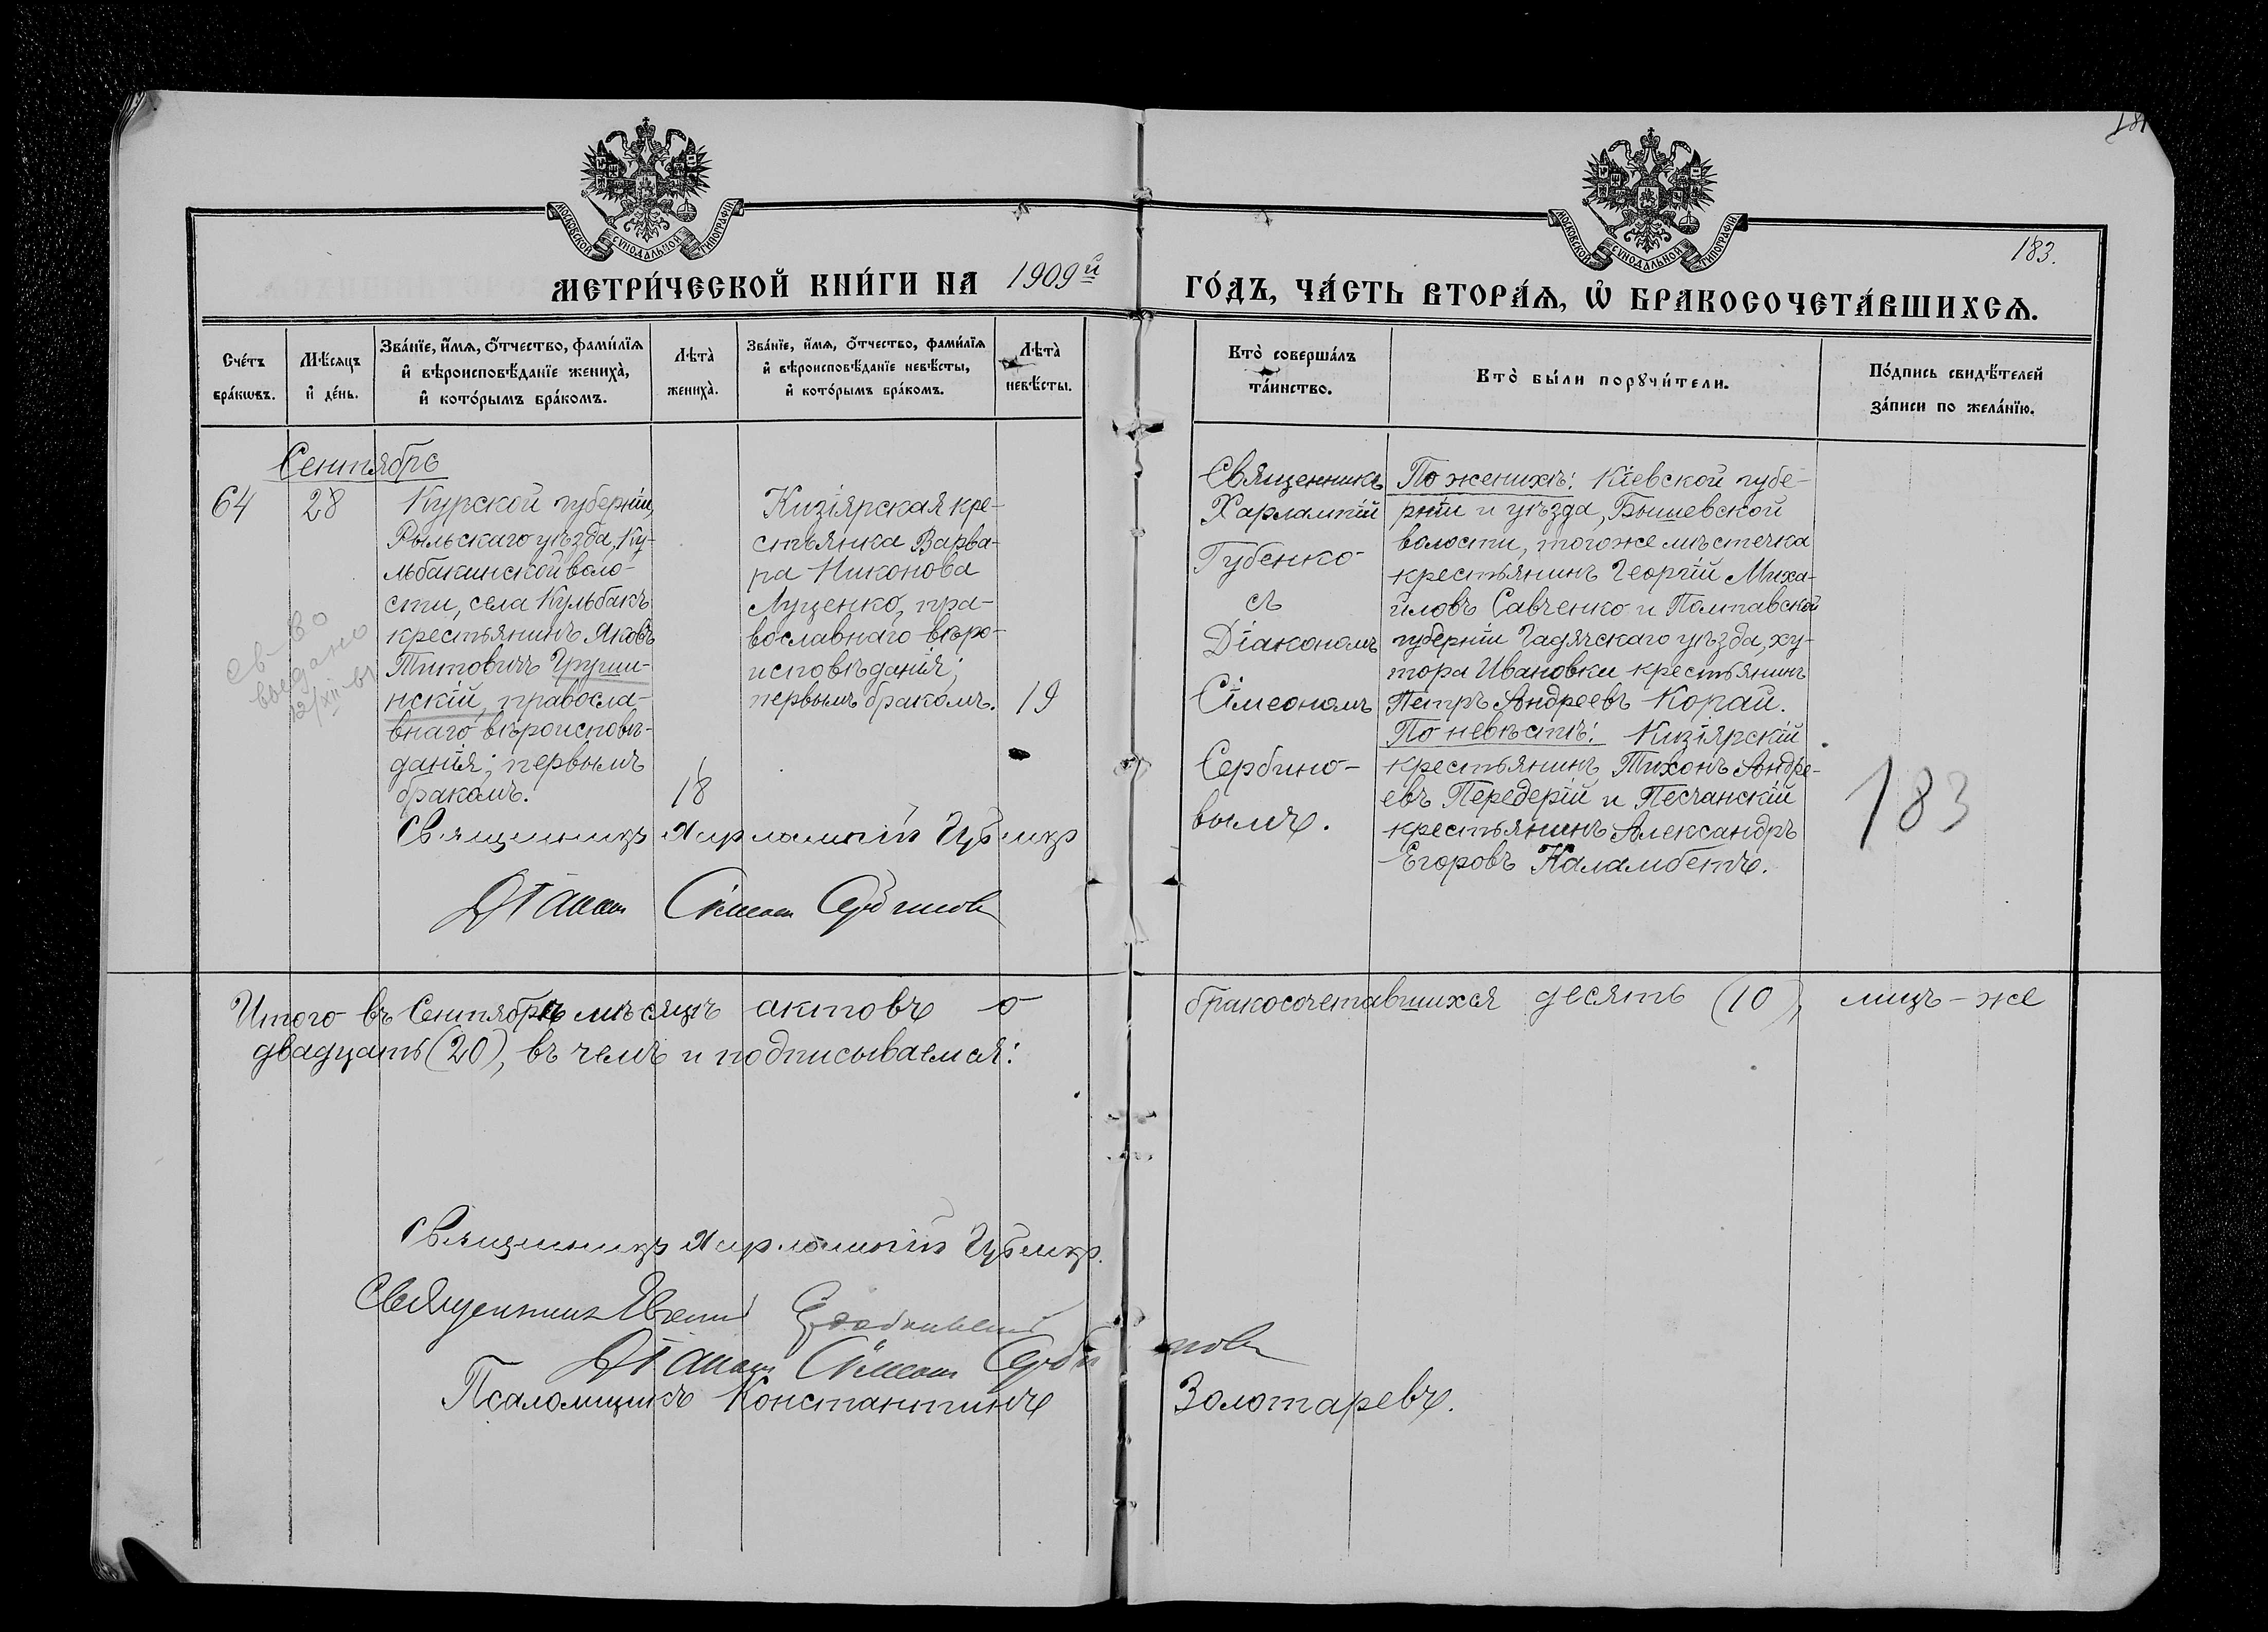 181
183.
МОСКОВСКОЙ СУНОДАЛЬНОЙ ТИПОГРАФІИ
МОСКОВСКОЙ СУНОДАЛЬНОЙ ТИПОГРАФІИ
МЕТРИ́ЧЕСКОЙ КНИ́ГИ НА 1909й ГО́ДЪ, ЧА́СТЬ ВТОРА́Ѧ, Ѽ БРАКОСОЧЕТА́ВШИХСѦ.
Сче́тъ бра́кѡвъ.
Мѣ́сѧцъ и҆ де́нь.
Зва́нїе, и҆́мѧ, ѻ҆́тчество, фами́лїѧ и҆ вѣроисповѣ́данїе жениха̀, и҆ кото́рымъ бра́комъ.
Лѣта̀ жениха̀.
Зва́нїе, и҆́мѧ, ѻ҆́тчество, фами́лїѧ и҆ вѣроисповѣ́данїе невѣ́сты, и҆ кото́рымъ бра́комъ.
Лѣта̀ невѣ́сты.
Кто̀ соверша́лъ та́инство.
Кто̀ бы́ли порꙋчи́тели.
По́дпись свидѣ́телей за́писи по жела́нїю.
Сентябрь
64
28
Курской губерніи,
Рыльскаго уѣзда, Ку-
льбакинской воло-
сти, села Кульбакъ
крестьянинъ Яковъ
Титовичъ Груши-
нскій, правосла-
внаго вѣроисповѣ-
данія; первымъ
бракомъ.
18
Кизіярская кре-
стьянка Варва-
ра Никонова
Луценко, пра-
вославнаго вѣро-
исповѣданія;
первымъ бракомъ.
19
св-во
выдано
12/XII
Священникъ
Харлампій
Губенко
съ
Діакономъ
Сімеономъ
Сербино-
вымъ.
По женихѣ: Кіевской губе-
рніи и уѣзда, Бышевской
волости, тогоже мѣстечка
крестьянинъ Георгій Миха-
йловъ Савченко и Полтавской
губерніи Гадячскаго уѣзда, ху-
тора Ивановки крестьянинъ
Петръ Андреевъ Корай.
По невѣстѣ: Кизіярскій
крестьянинъ Тихонъ Андре-
евъ Передерій и Песчанскій
крестьянинъ Александръ
Егоровъ Каламбетъ.
183
Священникъ Харлампій Губенко
Діаконъ Сімеонъ Сербиновъ
Итого въ Сентябрѣ мѣсяцѣ актовъ о бракосочетавшихся десять (10), лицъ-же
двадцать (20), въ чемъ и подписываемся:
Священникъ Харлампій Губенко.
Священникъ
Діаконъ Сімеонъ Сербиновъ
Псаломщикъ Константинъ Золотаревъ.